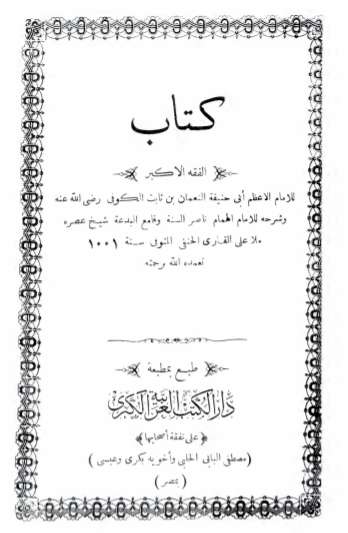 كتاب
الفقه الاكبر
للامام الاعظم أبى حنيفة النعمان بن ثابت الكوفى رضى الله عنه
وشرحه للامام الهمام ناصر السنة وقامع البدعة شيخ عصره
ملا على القارى الحنفى المتوفى سنة ١٠٠١
تغمده الله برحمته
طبع بمطبعة
دار الكتب العربية الكبرى
﴿على نفقة أصحابها﴾
(مصطفى البابى الحلبى وأخويه بكرى وعيسى)
(بمصر)